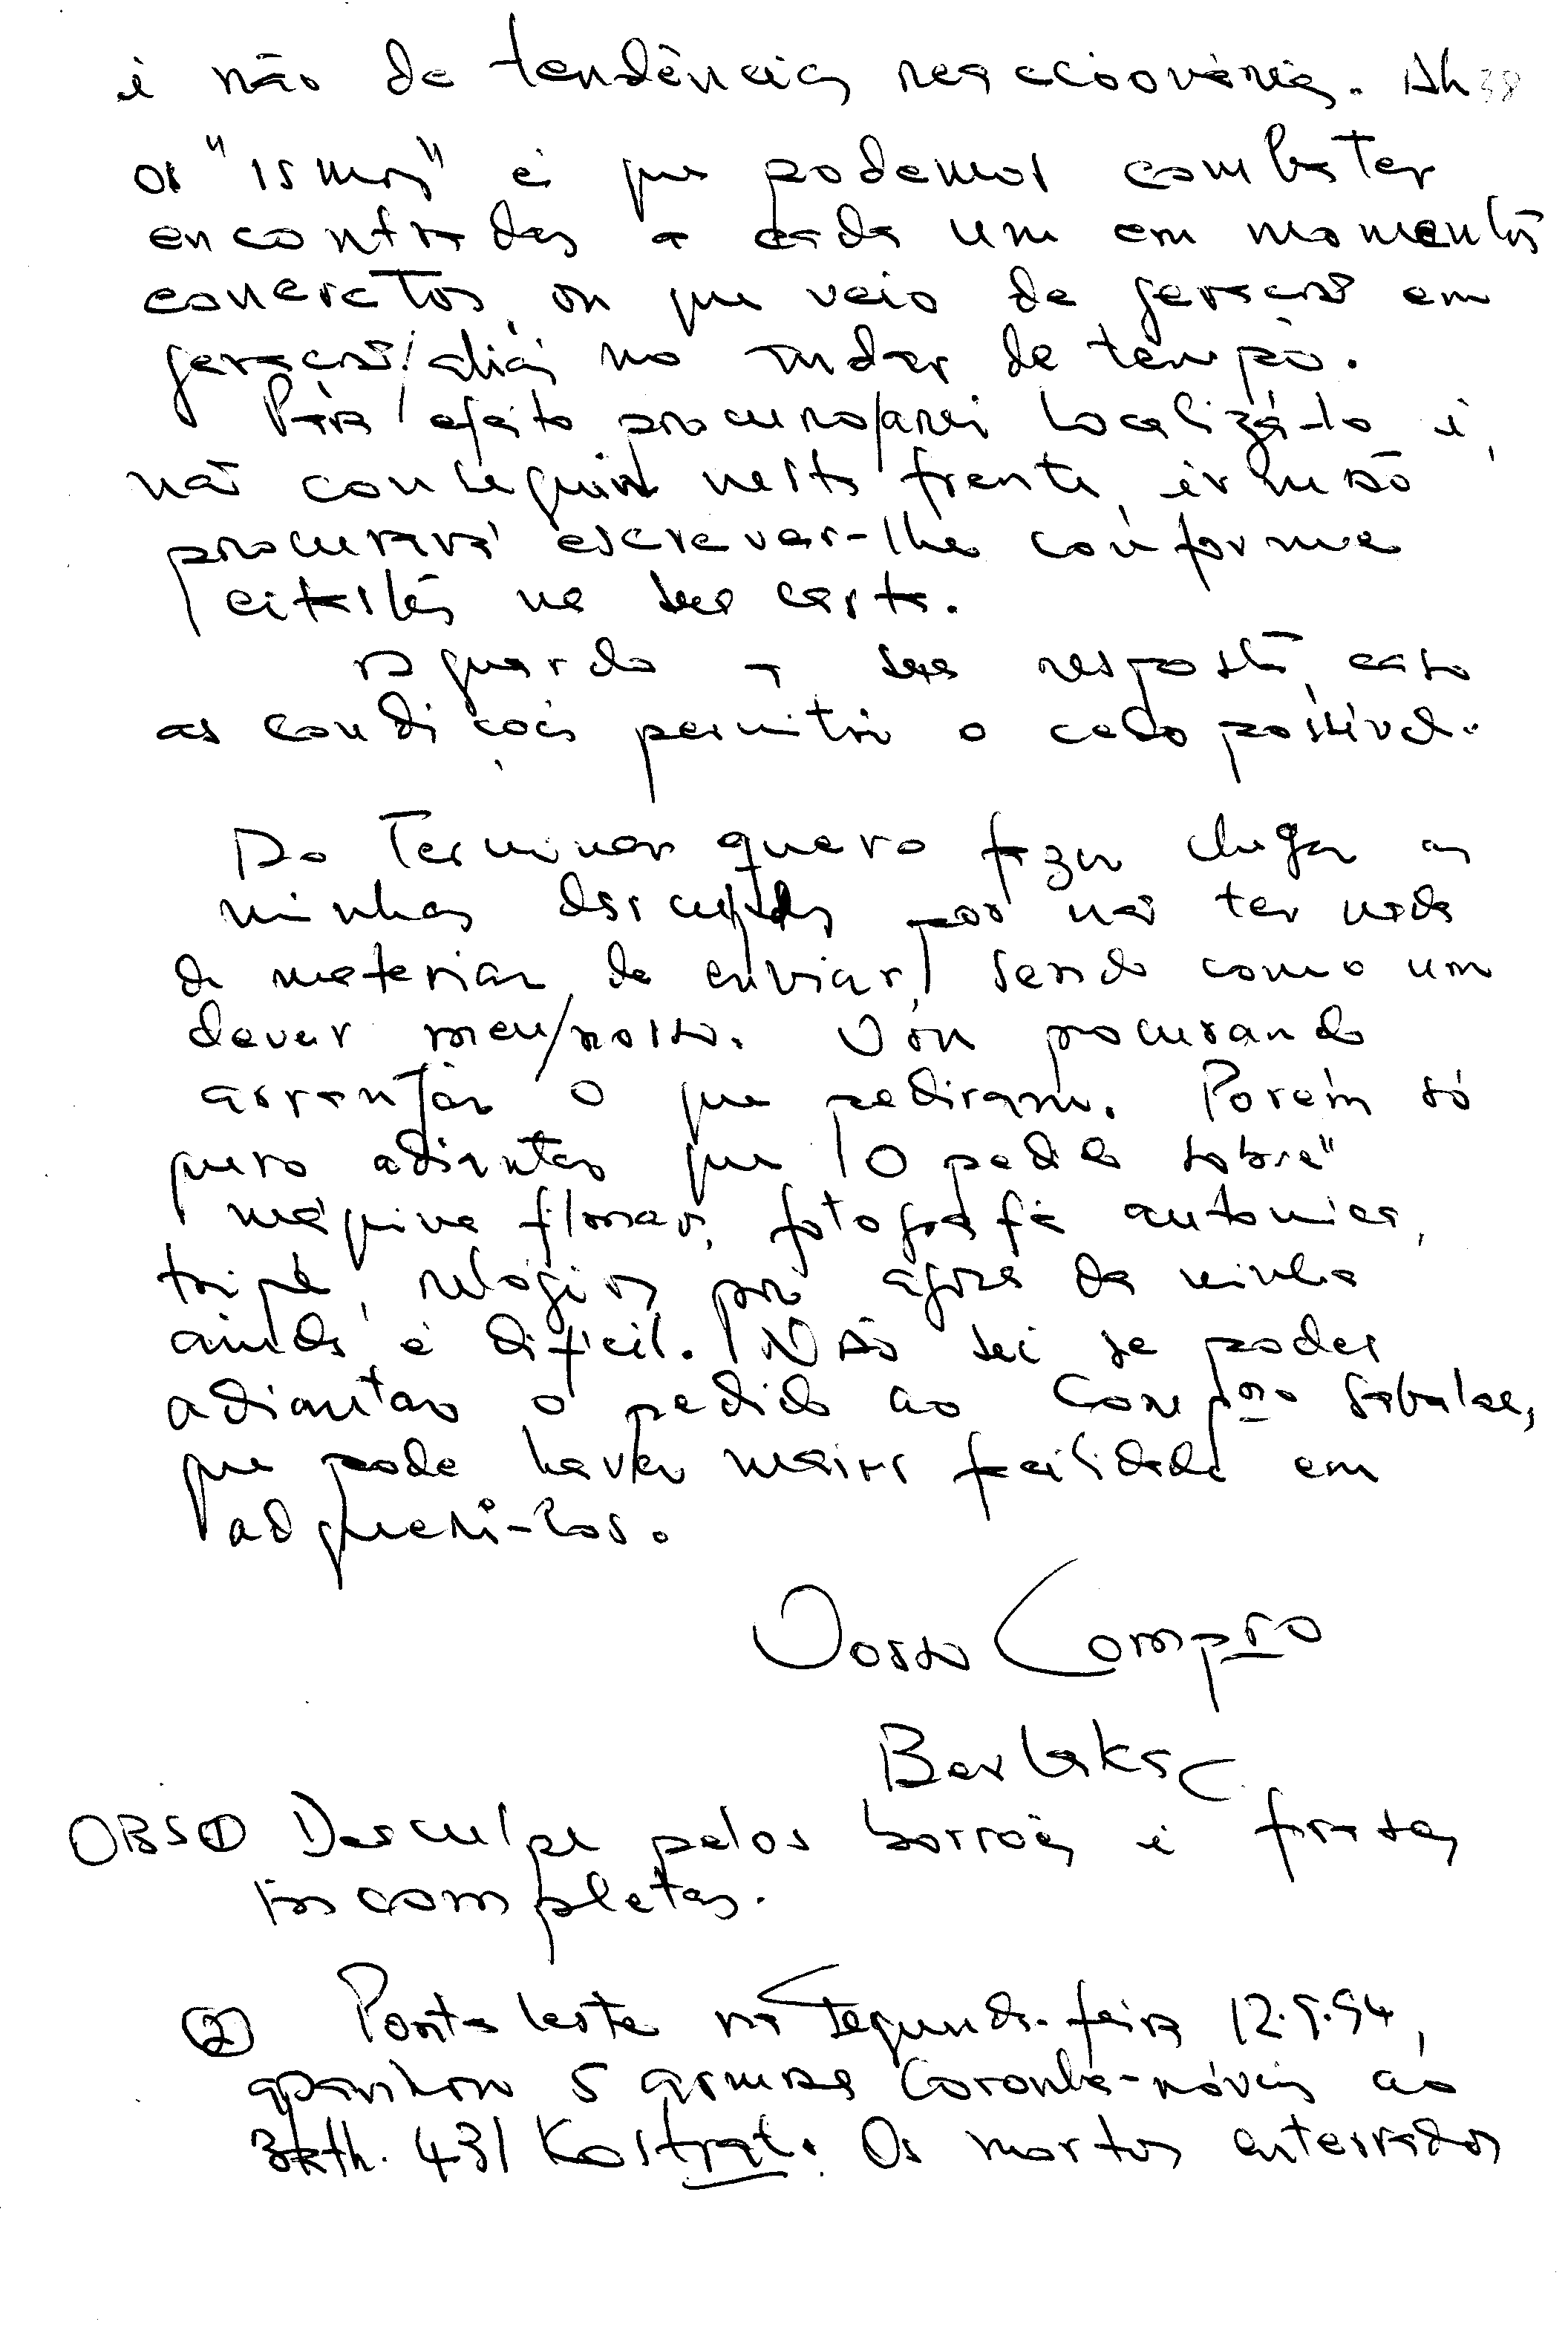 i não de tendências reaccionárias. Ah 38
os "ismos" é que podemos combater
encontradas a cada um em momentos
concretos, ou que veio de geração em
geração/aliás no andar de tempo.
Para efeito procuro/arei localizá-lo i,
não conseguir nesta frente, irmão
procurará escrever-lhe conforme
citastes na sua carta.
Aguardo a sua resposta, caso
as condições permitir o cedo possível.
Ao Terminar quero fazer chegar as
minhas desculpas por não ter nada
de material de enviar, sendo como um
dever meu/nosso. Vou procurando
arranjar o que pediram. Porém só
quero adiantar que "O pedido sobre"
máquina filmar, fotografia automica,
tripé, relógios por agora da minha
ainda é difícil. Não sei se podes
adiantar o pedido ao Compro Sabalae,
que pode haver maior facilidade em
adqueri-los.
Vosso Compro
Berlaksc
OBS① Desculpe pelos borrões i frases
incompletas.
② Ponta leste na Segunda-feira 12.9.94,
apanhou 5 armas Coronha-móveis ao
431 Kostrat. Os mortos enterrados